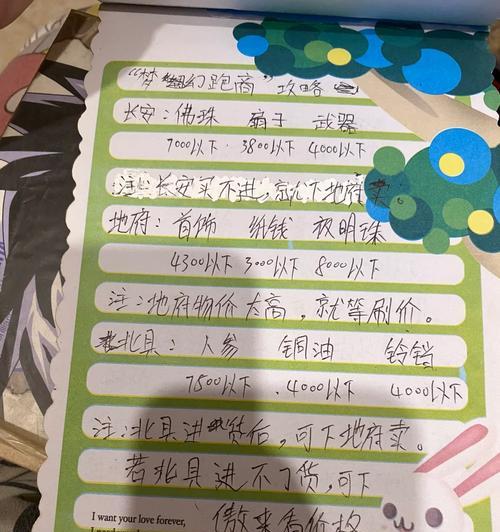 “梦幻跑商”攻略
长安：佛珠 扇子 武器
7000以下·3800以下 4000以下
注：长安买不进，就下地府卖。
地府：首饰 纸钱 夜明珠
4300以下 3000以下 8000以下
注：地府物价太高，就等刷价。
北具：人参 铜油 铃铛
7500以下．4000以下 4000以下
注：北具进货后，可下地府卖。
若北具进不了货，可下
傲来看价格
I want your love forever,